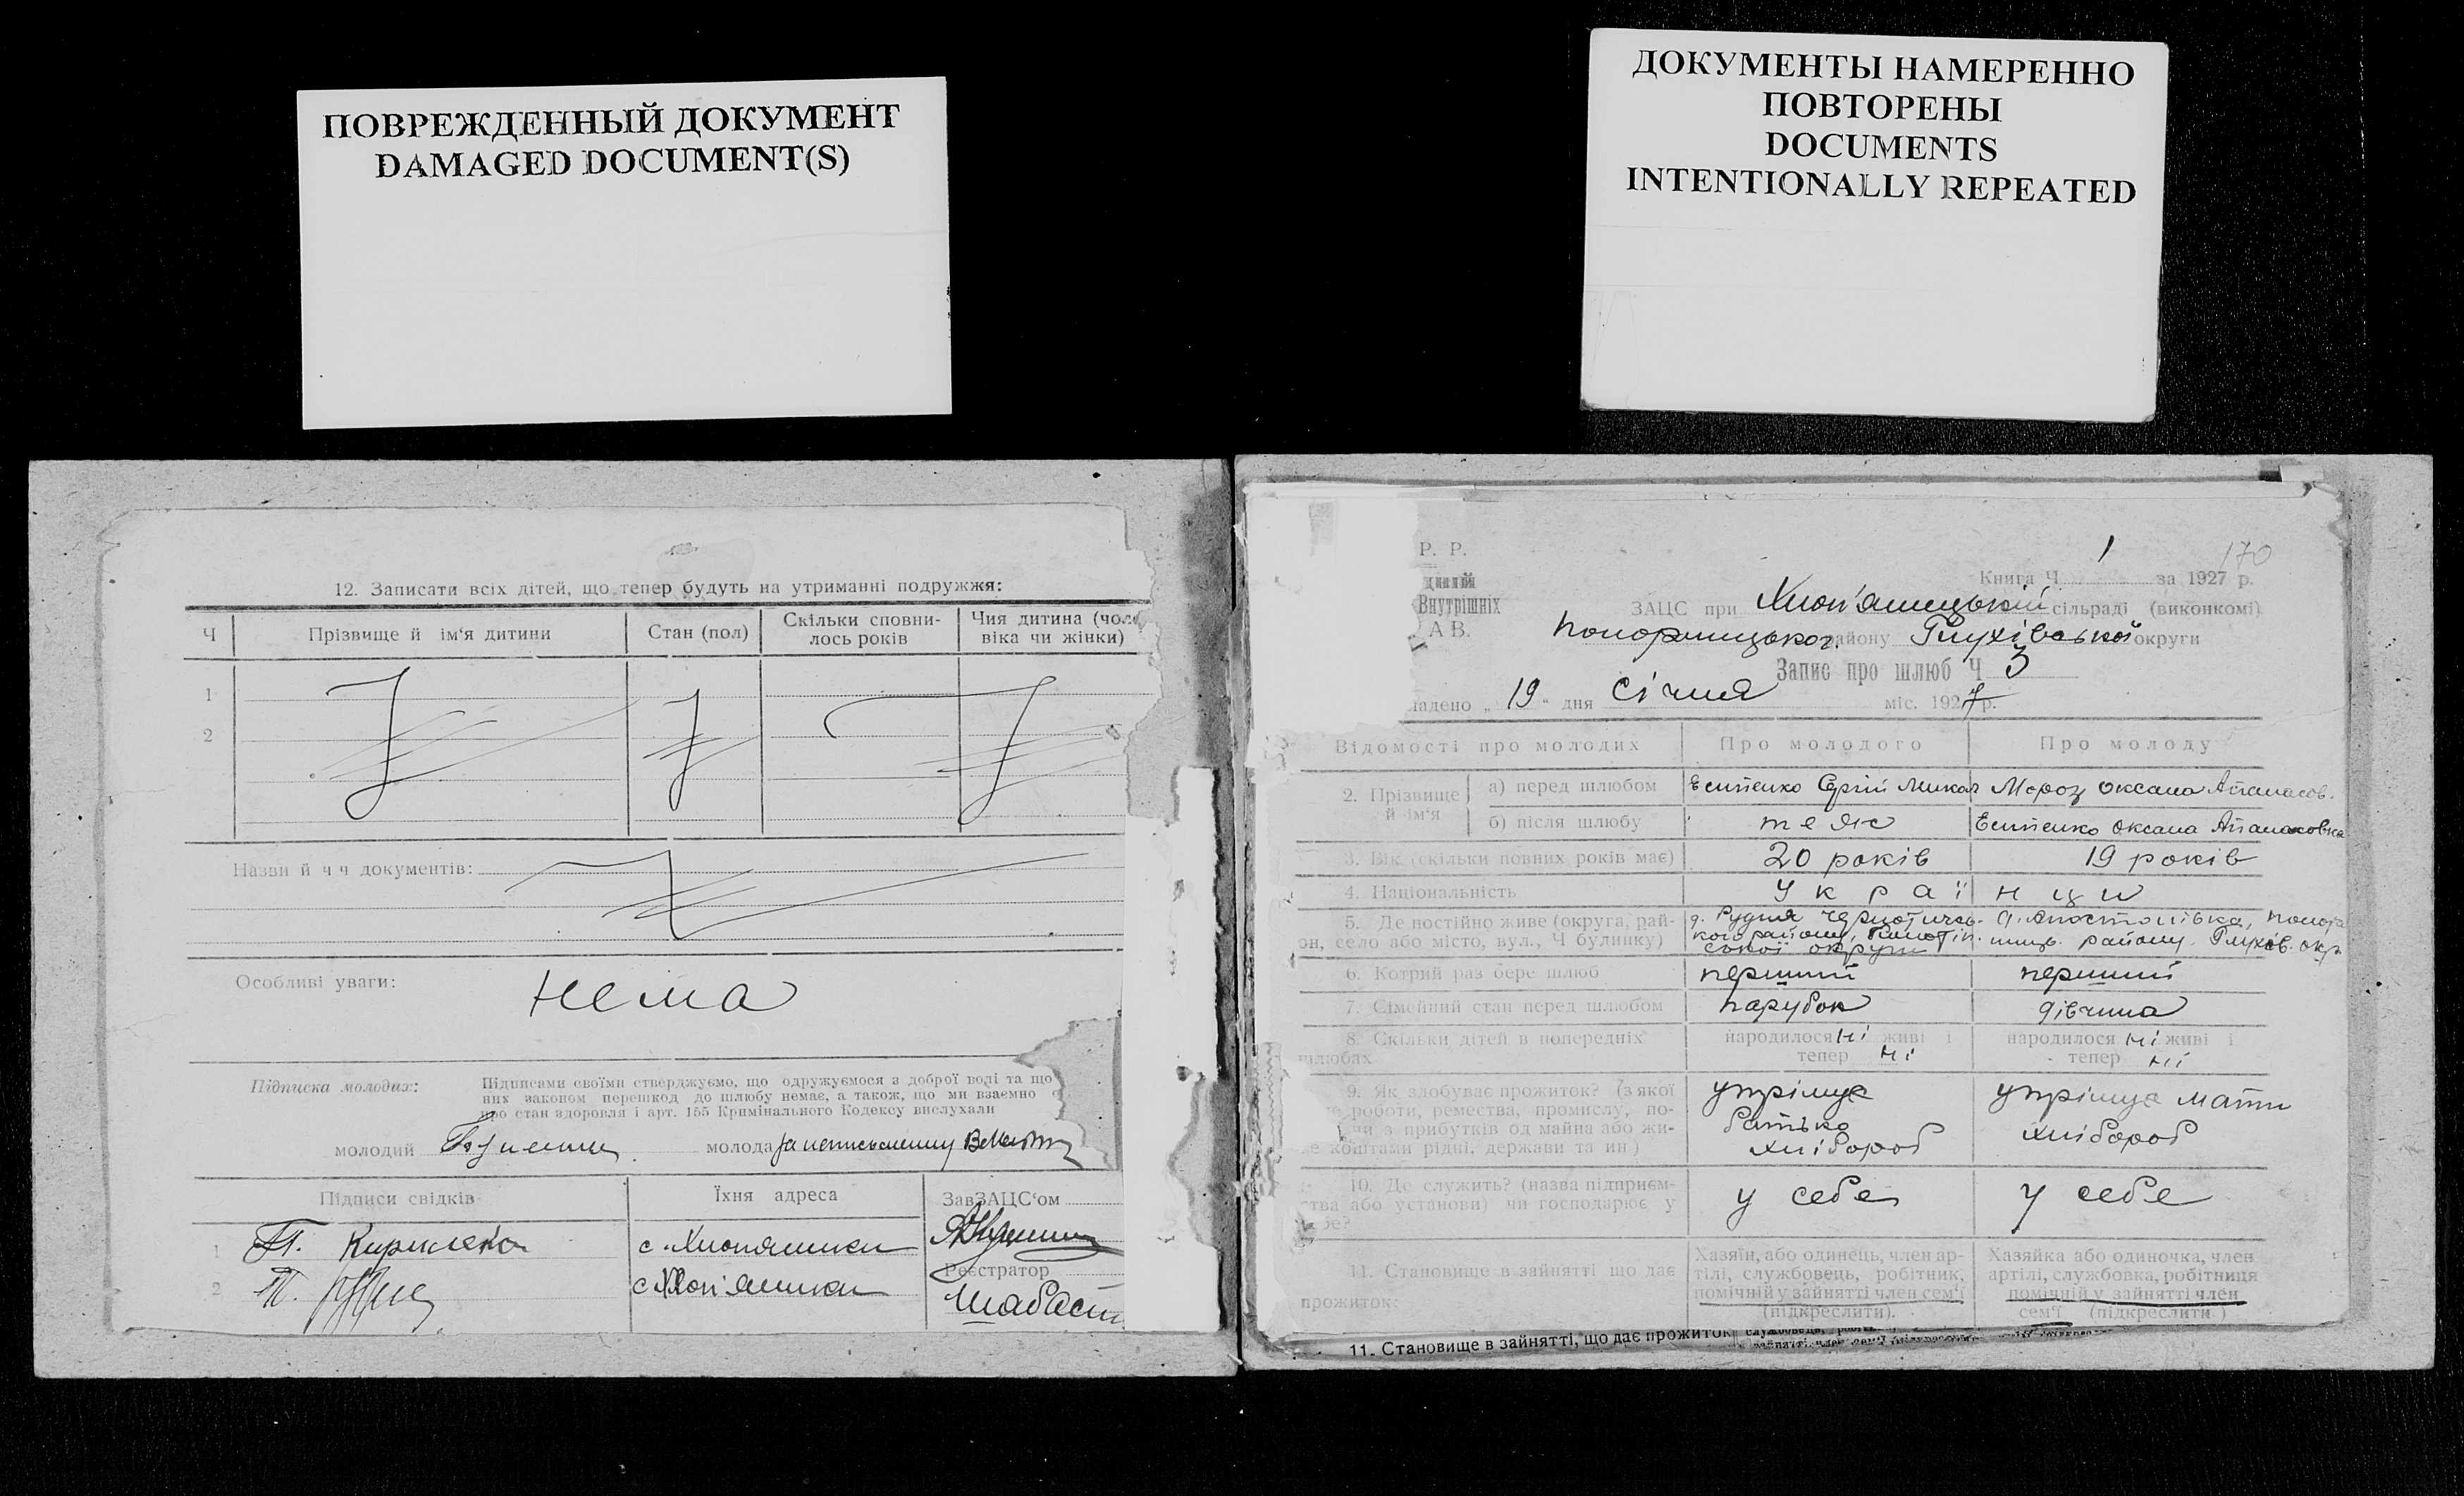 ПОВРЕЖДЕННЫЙ ДОКУМЕНТ
DAMAGED DOCUMENT(S)
ДОКУМЕНТЫ НАМЕРЕННО
ПОВТОРЕНЫ
DOCUMENTS
INTENTIONALLY REPEATED
12. Записати всіх дітей, що тепер будуть на утриманні подружжя:
Ч
Прізвище й ім‘я дитини
Стан (пол)
Скільки сповни-
лось років
Чия дитина (чоло
віка чи жінки)
1
2
Назви й ч ч документів:
Особливі уваги: нема
Підписка молодих:
Підписами своїми стверджуємо, що одружуємося з доброї волі та що
них законом перешкод до шлюбу немає, а також, що ми взаємно
про стан здоровля і арт. 155 Кримінального Кодексу вислухали
молодий
молода за неписьменну
Підписи свідків
Їхня адреса
ЗавЗАЦС‘ом
1 с. Хлопяники
Реєстратор
2 с Хлоп'яники
Р. Р.
Внутрішніх
А В.
1 170
Книга Ч за 1927 р.
ЗАЦС при Хлоп'яницькій сільраді (виконкомі)
Понорницьког. району Глухівської округи
Запис про шлюб Ч 3
ладено „ 19 “ дня Січня міс. 1927 р.
Відомості про молодих
Про молодого
Про молоду
2. Прізвище
й ім‘я
а) перед шлюбом
Єсипенко Сергій Микол
Мороз Оксана Апанасов.
б) після шлюбу
теж
Єсипенко Оксана Апанасовна
3. Вік (скільки повних років має)
20 років
19 років
4. Національність
Украї нци
5. Де постійно живе (округа, рай-
он, село або місто, вул., Ч будинку)
д. Рудня
кого району,
ської округи
д. Апостолівка, Понор
ниць. району. Глухів. окр
6. Котрий раз бере шлюб
перший
перший
7. Сімейний стан перед шлюбом
парубок
дівчина
8. Скільки дітей в попередніх
шлюбах
народилося ні живі і
тепер ні
народилося ні живі і
тепер ні
9. Як здобуває прожиток? (з якої
роботи, ремества, промислу, по-
чи з прибутків од майна або жи-
коштами рідні, держави та ин)
утрімує
батько
хлібороб
утрімує мати
хлібороб
10. Де служить? (назва підприєм-
ства або установи) чи господарює у
себе?
у себе
у себе
11. Становище в зайнятті що дає
прожиток:
Хазяїн, або одинець, член ар-
тілі, службовець, робітник,
помічній у зайнятті член сем‘ї
(підкреслити).
Хазяйка або одиночка, член
артілі, службовка, робітниця
помічній у зайнятті член
сем‘ї (підкреслити )
11. Становище в зайнятті, що дає прожиток